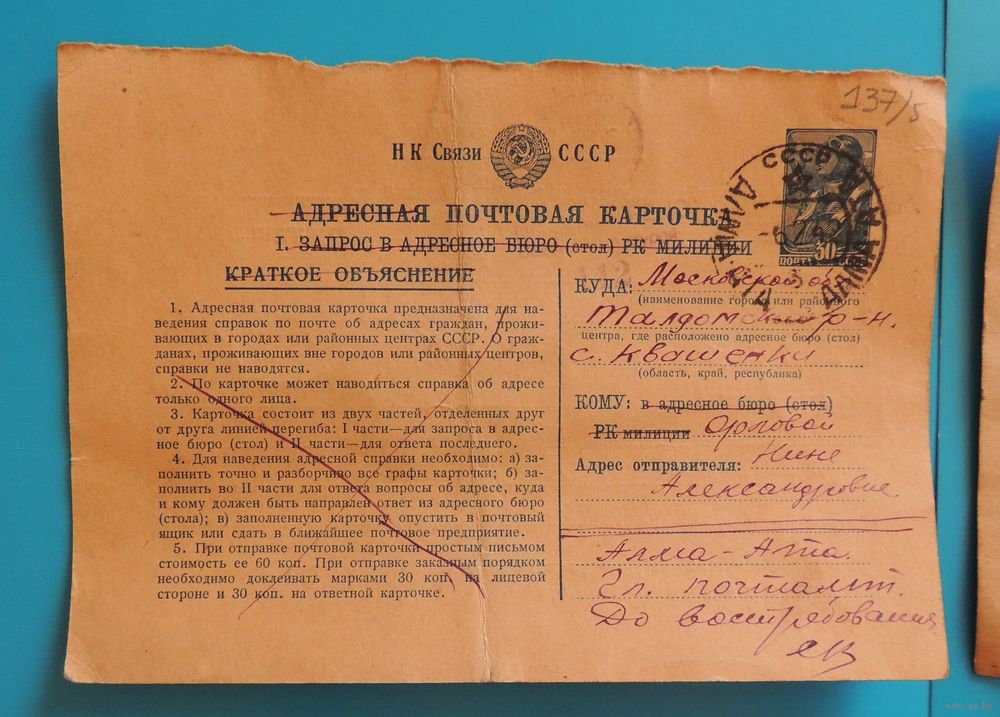 137/5
НК Связи СССР
АДРЕСНАЯ ПОЧТОВАЯ КАРТОЧКА
I. ЗАПРОС В АДРЕСНОЕ БЮРО (стол) РК МИЛИЦИИ
КРАТКОЕ ОБЪЯСНЕНИЕ
1. Адресная почтовая карточка предназначена для на-
ведения справок по почте об адресах граждан, прожи-
вающих в городах или районных центрах СССР. О граж-
данах, проживающих вне городов или районных центров,
справки не наводятся.
2. По карточке может наводиться справка об адресе
только одного лица.
3. Карточка состоит из двух частей, отделенных друг
от друга линией перегиба: I части—для запроса в адрес-
ное бюро (стол) и II части—для ответа последнего.
4. Для наведения адресной справки необходимо: а) за-
полнить точно и разборчиво все графы карточки; б) за-
полнить во II части для ответа вопросы об адресе, куда
и кому должен быть направлен ответ из адресного бюро
(стола); в) заполненную карточку опустить в почтовый
ящик или сдать в ближайшее почтовое предприятие.
5. При отправке почтовой карточки простым письмом
стоимость ее 60 коп. При отправке заказным порядком
необходимо доклеивать марками 30 коп. на лицевой
стороне и 30 коп. на ответной карточке.
СССР
АЛМА-АТА
30
ПОЧТА СССР
КУДА: Московской об
(наименование города или районного
Талдомский р-н.
центра, где расположено адресное бюро (стол)
с. Квашенки
(область, край, республика)
КОМУ: в адресное бюро (стол)
РК милиции Орловой
Адрес отправителя: Нине
Александровне
Алма-Ата.
Гл. почтамт.
До востребования
www.ay.by